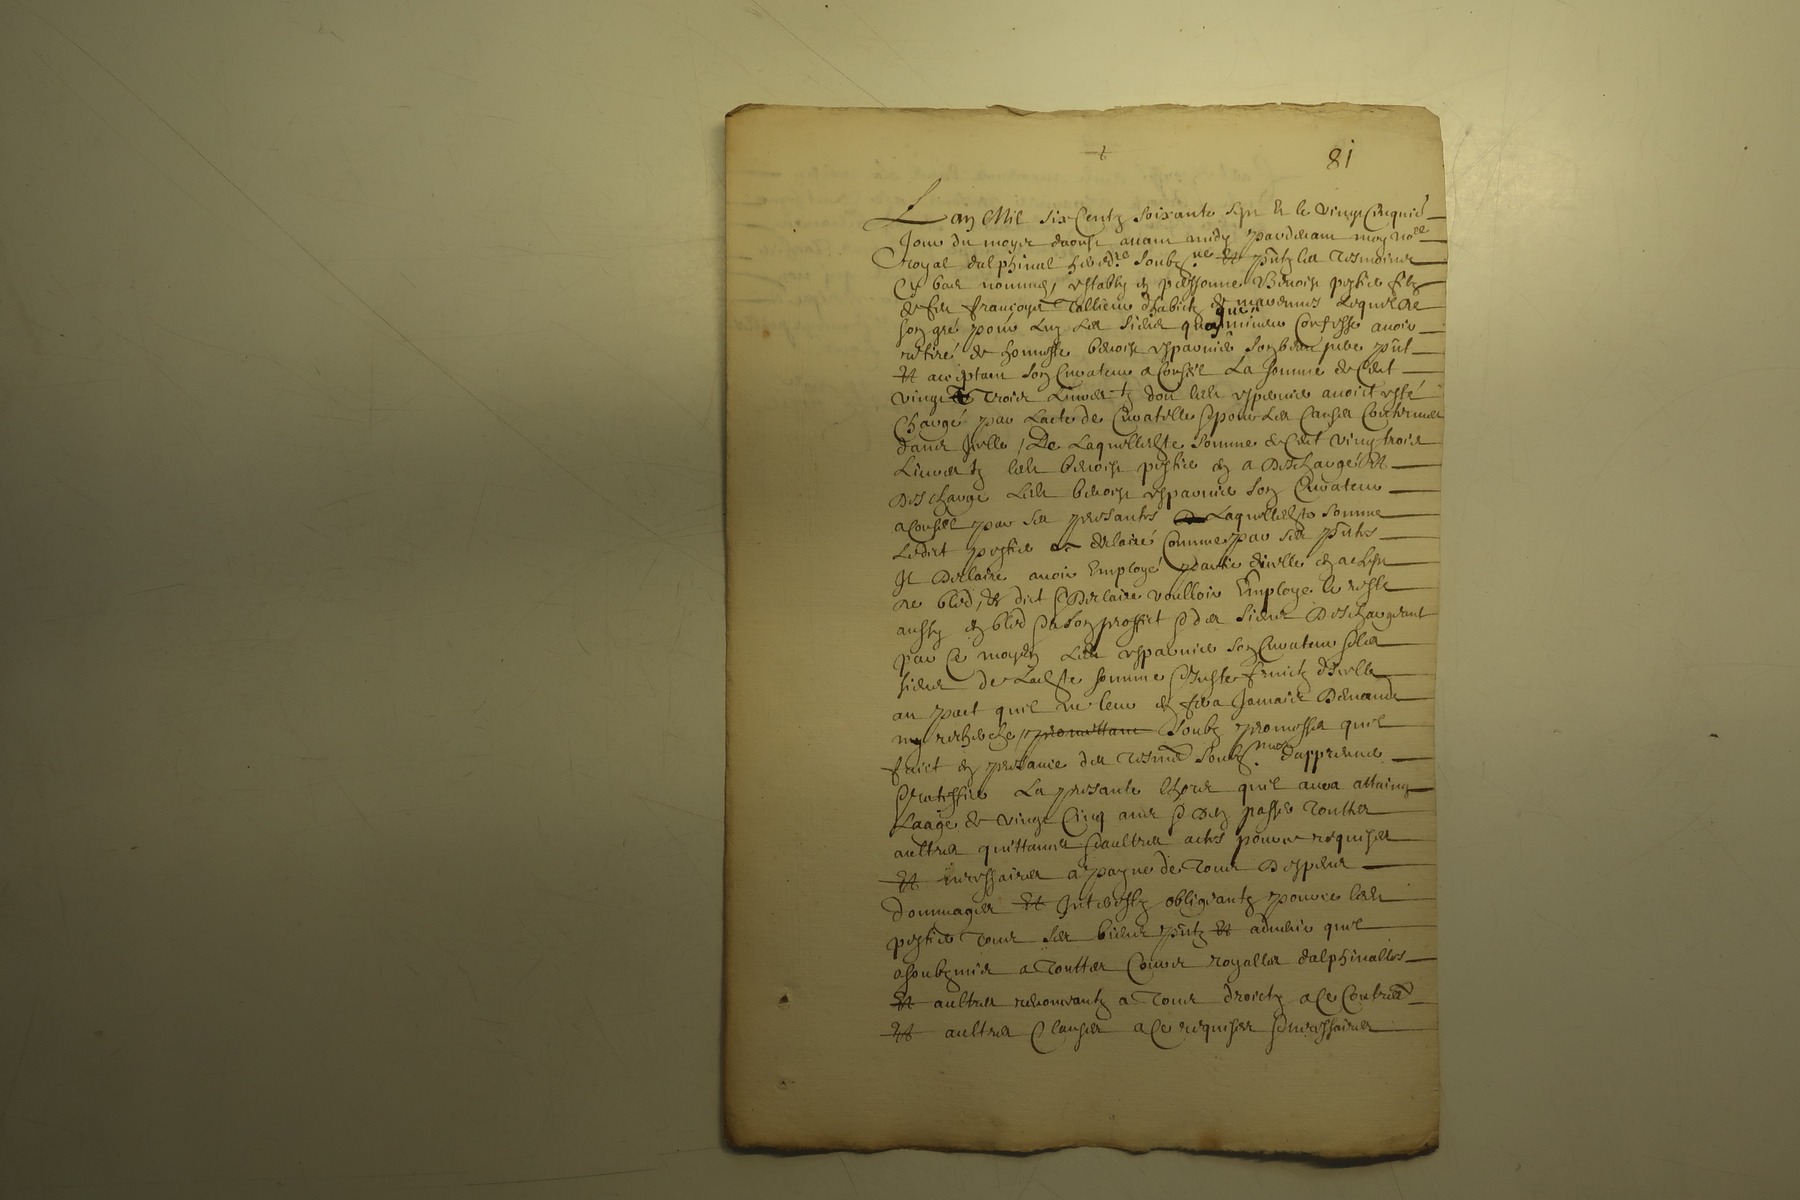 81
Lan Mil six Centz soixante sept & le vingt cinquie
Jour du moys daoust avant midy pardevant moy no.re
royal dalphinal hered.re soubz.né Et pntz les tesmoins
cy bas nommes, estably en personne Benoist
de feu françoys habitt de lequel de
son gré pour luy les siens Confesse avoir
retiré de honneste benoist esparvier son beau pere pnt
Et acceptant son Curateur a Conseil La somme de Cent
vingt trois Livres tz don ledt esparvier avoit esté
Chargé par Lacte de Curatelle & pour Les Causes Contenues
dans Icelle, De Laquelle dte somme de Cent vingt trois
Livres tz ledt benoist en a Deschargé Et
Descharge Ledt benoist esparvier son Curateur
a Conseil par ses presantes Laquelle dte somme
Ledict declairé Comme par ses pntes
Il Declaire avoir Employé partie dicelle en achept
de bled, & dict & Declaire voulloir Employe le reste
aussy en bled & a son proffict & des siens Deschargeant
par Ce moyen Ledt esparvier son Curateur & les
siens de Ladte somme & Juste fruictz dIcelle
au pact quil ne leur en fera Jamais Demande
ny recherche, promettant soubz promesse quil
faict en presance des tesmoins soubz.nes dapprouver
& ratiffier La presante lhors quil aura attaing
Laage de vingt Cinq ans & Den passer touttes
aultres quittances & aultres actes pour ce requises
Et necessaires a payne de tous Despens
dommages Et Interestz obligeantz pour ce ledt
tous ses biens pntz Et advenir quil
a soubzmis a touttes Cours royalles dalphinalles
Et aultres renonceantz a tous droictz a Ce Contres
Et aultres Clauses a Ce requises & necessaires